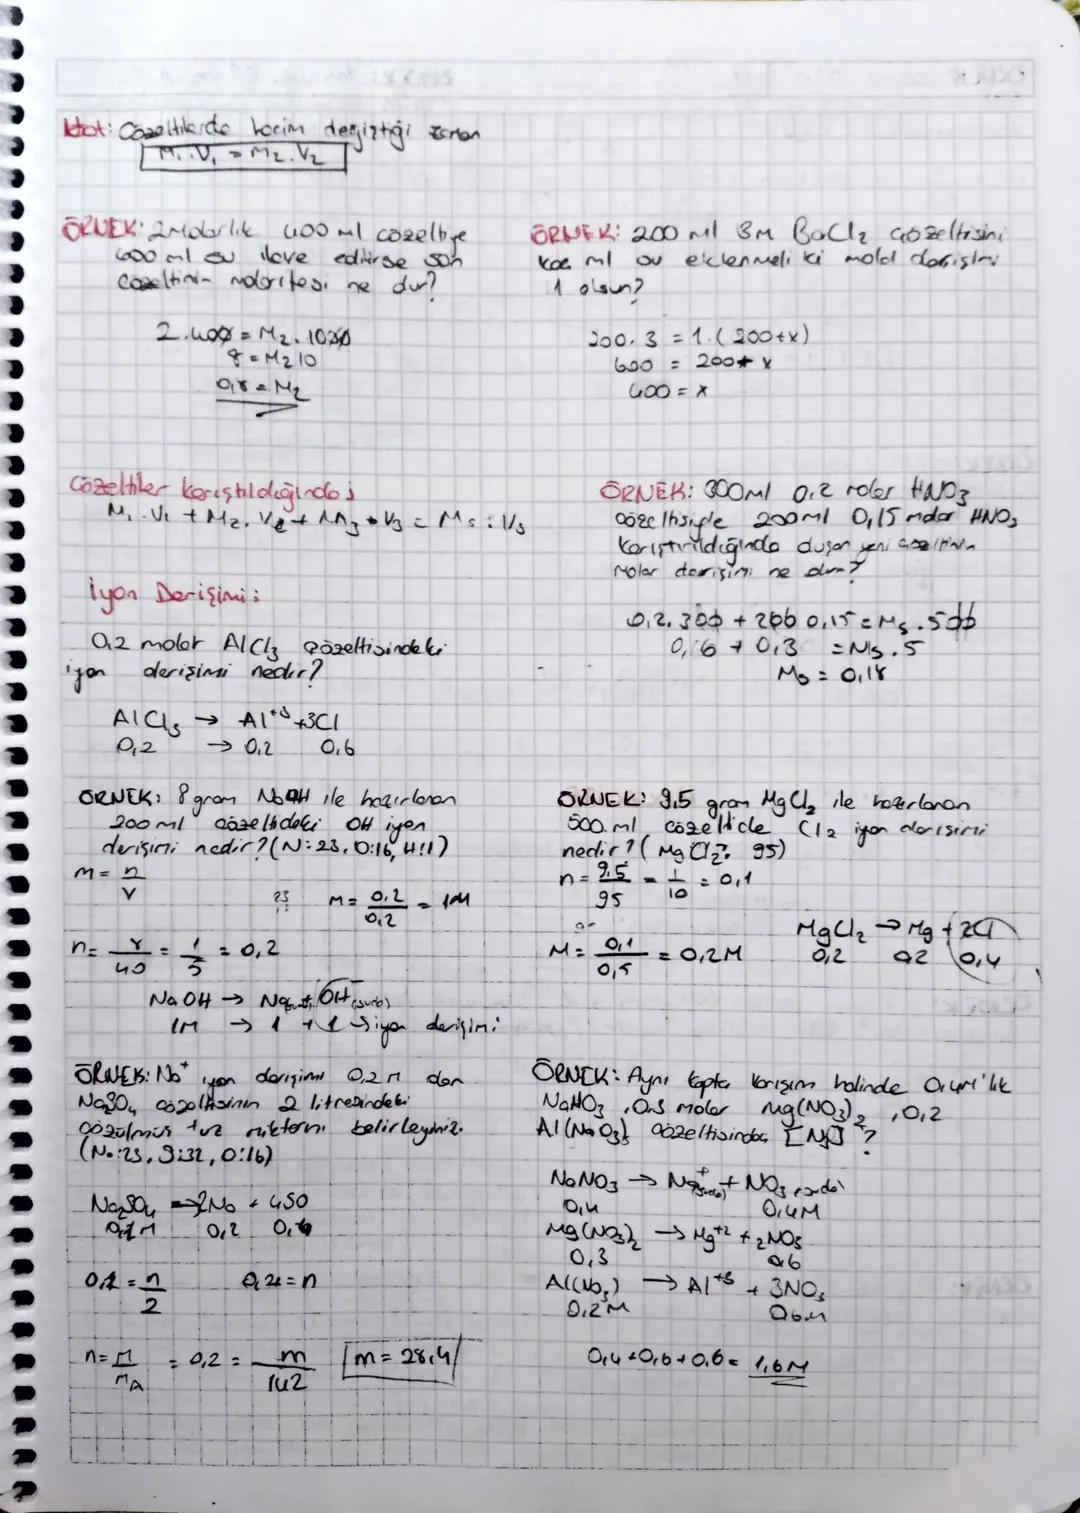 Not: Çözeltilerde hacim değiştiği zaman
M₁.V₁ = M₂.V₂
ÖRNEK: 2 Molarlık 400 ml çözeltiye
600 ml su ilave edilirse son
çözeltinin molaritesi ne dur?
2.400 = M₂.1000
8 = M₂10
0,8 = M₂
ÖRNEK: 200 ml 3M BaCl₂ çözeltisini
kaç ml su eklenmeli ki molal derişimi
1 olsun?
200.3 = 1.(200+x)
600 = 200+x
400 = x
Çözeltiler karıştıldığında;
M₁.V₁ + M₂.V₂ + M₃.V₃ = Ms.Vs
ÖRNEK: 300ml 0,2 molar HNO₃
çözeltisiyle 200ml 0,15 molar HNO₃
karıştırıldığında oluşan yeni çözeltinin
molar derişimi ne olur?
0,2.300 + 200 0,15 = Ms.500
0,6 + 0,3 = Ms.5
Ms = 0,18
İyon Derişimi:
0,2 molar AlCl₃ çözeltisindeki
iyon derişimi nedir?
AlCl₃ → Al⁺³ + 3Cl
0,2 → 0,2 0,6
ÖRNEK: 8 gram NaOH ile hazırlanan
200 ml çözeltideki OH iyon
derişimi nedir? (N: 23, O:16, H:1)
M = n/V
23
M = 0,2/0,2 = 1M
n = 8/40 = 1/5 = 0,2
NaOH → Na(suda) + OH(suda)
1M → 1 + 1 → iyon derişimi
ÖRNEK: 9,5 gram MgCl₂ ile hazırlanan
500.ml çözeltide Cl₂ iyon derişimi
nedir? (MgCl₂: 95)
n = 9,5/95 = 1/10 = 0,1
M = 0,1/0,5 = 0,2M
MgCl₂ → Mg + 2Cl
0,2 0,2 0,4
ÖRNEK: Na⁺ iyon derişimi 0,2 M olan
Na₂SO₄ çözeltisinin 2 litresindeki
çözülmüş tuz miktarını belirleyiniz.
(Na:23, S:32, O:16)
Na₂SO₄ → 2Na + 4SO
0,1M 0,2 0,4
0,1 = n/2 0,2 = n
n = m/MA = 0,2 = m/142 m = 28,4
ÖRNEK: Aynı kapta karışım halinde 0,4M'lik
NaNO₃, 0,3 molar Mg(NO₃)₂, 0,2
Al(NO₃)₃ çözeltisindeki [ ] ?
NaNO₃ → Na⁺(suda) + NO₃(suda)
0,4 0,4M
Mg(NO₃)₂ → Mg⁺² + 2NO₃
0,3 0,6
Al(NO₃) → Al⁺³ + 3NO₃
0,2M 0,6M
0,4 + 0,6 + 0,6 = 1,6M